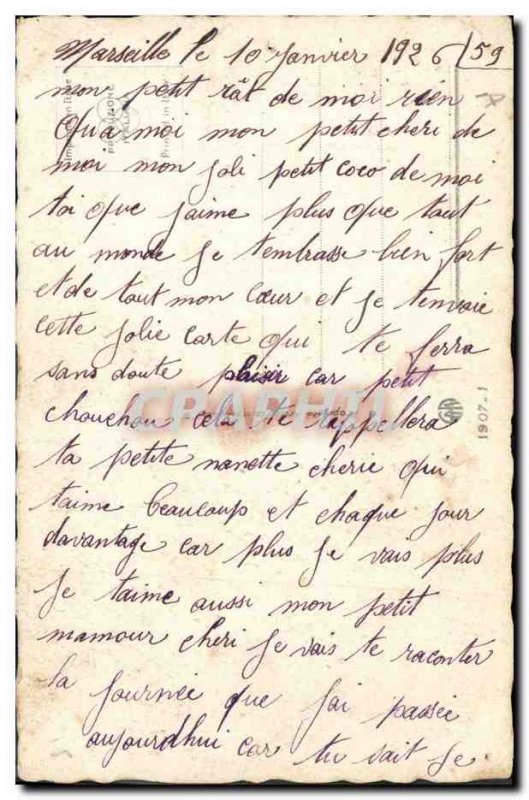 Marseille le 10 Janvier 1926 /59
mon petit rât de moi rien
Qua moi mon petit cheri de
moi mon joli petit coco de moi
toi que jaime plus que tout
au monde Je tembrasse bien fort
et de tout mon cœur et Je tenvoie
cette jolie carte qui te ferra
sans doute plaisir car petit
chouchou cela te rappellera
ta petite nanette cherie qui
taime beaucoup et chaque jour
davantage car plus Je vais plus
Je taime aussi mon petit
mamour cheri Je vais te raconter
la Journée que jai passée
aujourdhui car tu sait Je
CPAPHIL
1907-1